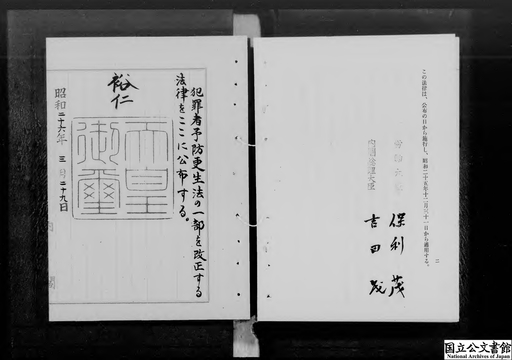 この法律は、公布の日から施行し、昭和二十五年十二月三十一日から適用する。
二
労働大臣
保利茂
内閣総理大臣
吉田茂
犯罪者予防更生法の一部を改正する
法律をここに公布する。
裕仁
天皇
御璽
昭和二十六年三月二十九日
内閣
国立公文書館
National Archives of Japan